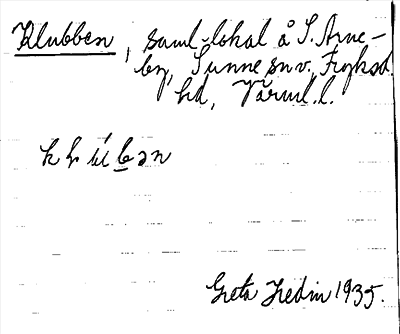 Klubben, saml.lokal å S. Arne-
by, Sunne sn v., Fryksd.
hd, Värml. l.
Greta Hedin 1935.